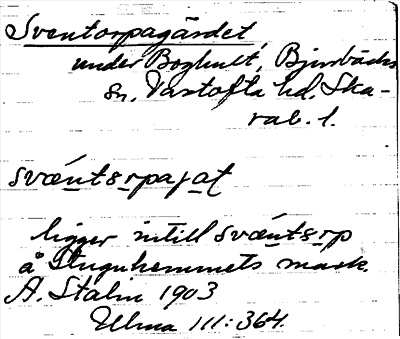 Sventorpagärdet
under Boghult, Bjurbäcks
sn. Vartofta hd. Ska-
rab. l.
svæntsrpajat
ligger intill svæntsrp
å Stuguhemmets mark.
A. Stalin 1903
Ulma 111:364.